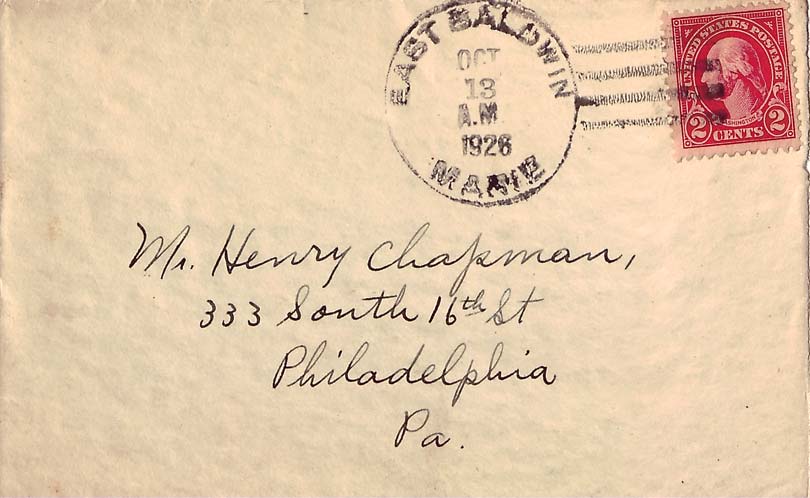 EAST BALDWIN
OCT
13
A.M
1926
MAINE
UNITED STATES POSTAGE
WASHINGTON
2 CENTS 2
Mr. Henry Chapman,
333 South 16th St
Philadelphia
Pa.